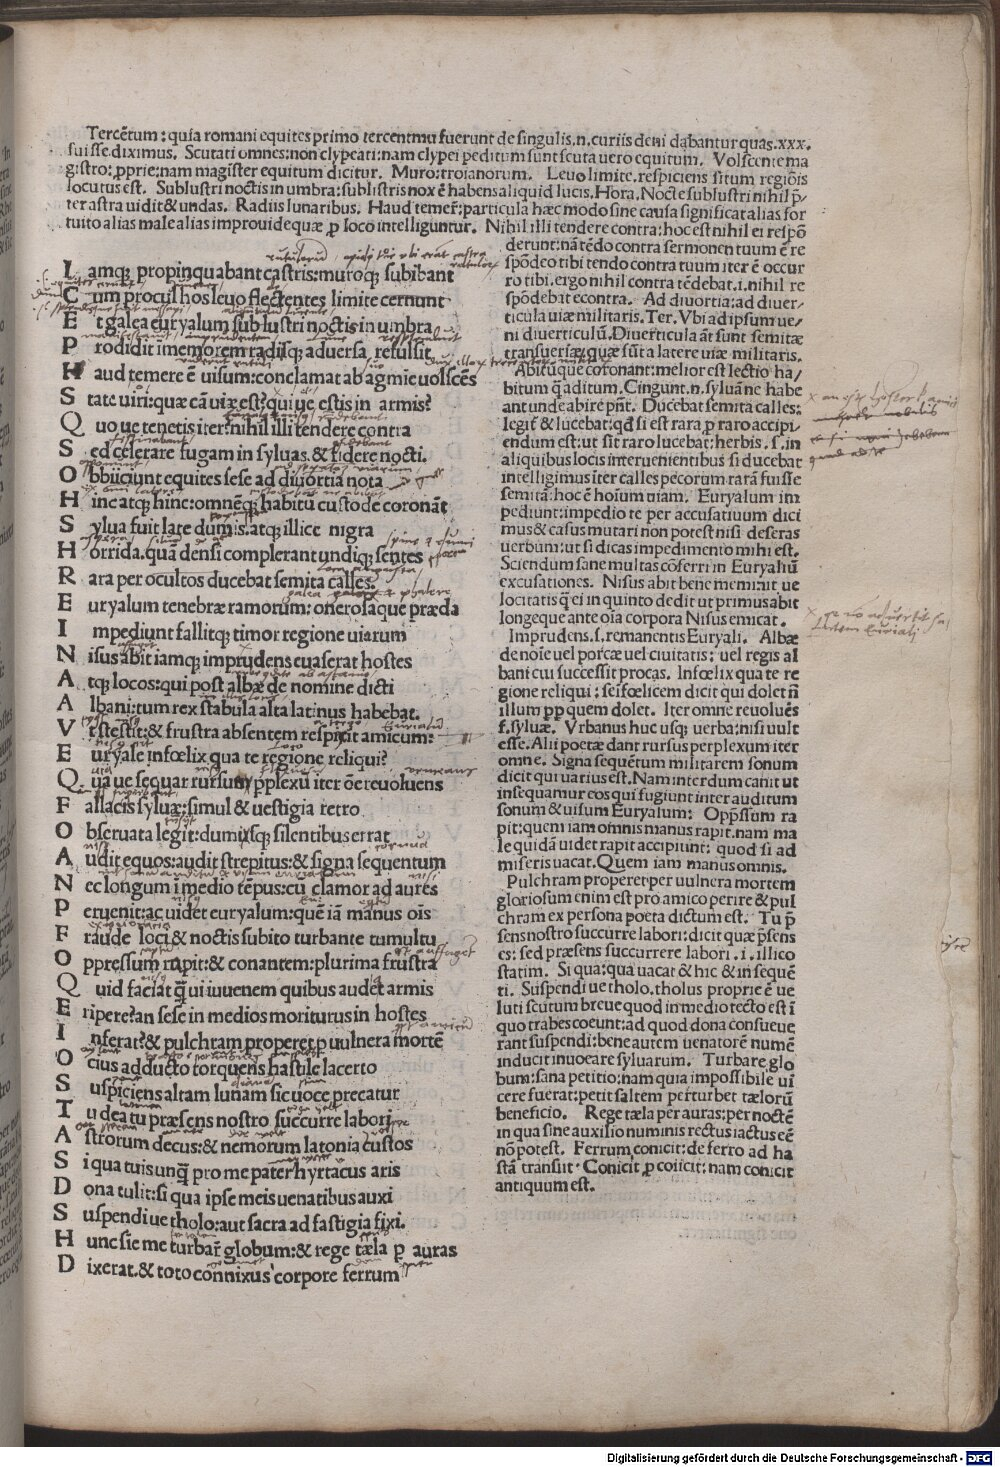 Tercētum: quia romani equites primo tercentum fuerunt de singulis.n.curiis deni dabantur quas.xxx.
fuisse.diximus. Scutati omnes: non clypeati: nam clypei peditum sunt scuta uero equitum. Volscente ma
gistro: pprie: nam magister equitum dicitur. Muro: troianorum. Leuo limite. respiciens situm regiōis
locutus est. Sublustri noctis in umbra: sublistris nox ē habens aliquid lucis. Hora. Nocte sublustri nihil p̄
ter astra uidit & undas. Radiis lunaribus. Haud temer̄: particula hæc modo sine causa significat alias for
tuito alias male alias improuide quæ p loco intelliguntur. Nihil illi tendere contra: hoc est nihil ei respō
derunt: nā tēdo contra sermonen tuum ē re
spōdeo tibi tendo contra tuum iter ē occur
ro tibi. ergo nihil contra tēdebat. i. nihil re
spōdebat econtra. Ad diuortia: ad diuer
ticula uiæ militaris. Ter. Vbi ad ipsum ue/
ni diuerticulū. Diuerticula āt sunt semitæ
transuersæ: quæ sūt a latere uiæ militaris.
Abitūque coronant: melior est lectio ha/
bitum q̄ aditum. Cingunt. n. syluā ne habe
ant unde abire pñt. Ducebat semita calles:
legit̄ & lucebat: qd si est rara p raro accipi/
endum est: ut sit raro lucebat: herbis. s. in
aliquibus locis interuenientibus si ducebat
intelligimus iter calles pecorum rarā fuisse
semitā: hoc ē hoīum uiam. Euryalum im
pediunt: impedio te per accusatiuum dici
mus & casus mutari non potest nisi deseras
uerbum: ut si dicas impedimento mihi est.
Sciendum sane multas cōferri in Euryaliū
excusationes. Nisus abit bene memīnit ue
locitatis q̄ ei in quinto dedit ut primus abit
longeque ante oīa corpora Nisus emicat.
Imprudens. s. remanentis Euryali. Albæ
de noīe uel porcæ uel ciuitatis: uel regis al
bani cui successit procas. Infœlix qua te re
gione reliqui: se ifœlicem dicit qui dolet ñ
illum pp quem dolet. Iter omne reuoluēs
f. syluæ. Vrbanus huc usq; uerba: nisi uult
esse. Alii poetæ dant rursus perplexum iter
omne. Signa sequētum militarem sonum
dicit qui uarius est. Nam interdum canit ut
insequamur eos qui fugiunt inter auditum
sonum & uisum Euryalum: Oppssum ra
pit: quem iam omnis manus rapit. nam ma
le quidā uidet rapit accipiunt: quod si ad
miseris uacat. Quem iam manus omnis.
Pulchram properet per uulnera mortem
gloriosum enim est pro amico perire & pul
chram ex persona poeta dictum est. Tu p̄
sens nostro succurre labori: dicit quæ p̄sens
es: sed præsens succurrere labori. i. illico
statim. Si qua: qua uacat & hic & in sequē
ti. Suspendi ue tholo. tholus proprie ē ue
luti scutum breue quod in medio tecto est ī
quo trabes coeunt: ad quod dona consueue
rant suspendi: bene autem uenatorē numē
inducit inuocare syluarum. Turbare glo
bum: sana petitio: nam quia impossibile ui
cere fuerat: petit saltem perturbet tælorū
beneficio. Rege tæla per auras: per noctē
in qua sine auxilio numinis rectus iactus eē
nō potest. Ferrum conicit: de ferro ad ha
stā transiit. Conicit p coiicit: nam conicit
antiquum est.
I amq; propinquabant castris: muroq; subibant
C um procul hos leuo flectentes limite cernunt
E t galea euryalum sublustri noctis in umbra
P rodidit imemorem radiisq; aduersa refulsit
H aud temere ē uisum: conclamat ab agmīe uolscēs
S tate uiri: quæ cā uiæ est? qui ue estis in armis?
Q uo ue tenetis iter? nihil illi tendere contra
S ed celerare fugam in syluas. & fidere nocti.
O biiciunt equites sese ad diuortia nota
H inc atq; hinc: omnēq; habitū custode coronāt
S ylua fuit late dumis. atq; illice nigra
H orrida. quā densi complerant undiq; sentes
R ara per occultos ducebat semita calles:
E uryalum tenebræ ramorum: onerosaque præda
I mpediunt fallitq; timor regione uiarum
N isus abit iamq; imprudens euaserat hostes
A tq; locos: qui post albæ de nomine dicti
A lbani: tum rex stabula alta latinus habebat.
V t stestit: & frustra absentem respicit amicum:
E uryale infœlix qua te regione reliqui?
Q ua ue sequar rursum pplexū iter ōe reuoluens
F allacis syluæ: simul & uestigia retro
O bseruata legit: dumisq; silentibus errat
A udit equos: audit strepitus: & signa sequentum
N ec longum ī medio tēpus: cū clamor ad aures
P eruenit: ac uidet euryalum: quē iā manus oīs
F raude loci & noctis subito turbante tumultu
O ppressum rapit: & conantem: plurima frustra
Q uid faciat q̄ ui iuuenem quibus audet armis
E ripere? an sese in medios moriturus in hostes
I nferat? & pulchram properet p uulnera mortē
O cius adducto torquens hastile lacerto
S uspiciens altam lunam sic uoce precatur
T u dea tu præsens nostro succurre labori.
A strorum decus: & nemorum latonia custos
S i qua tuis unq̄ pro me pater hyrtacus aris
D ona tulit: si qua ipse meis uenatibus auxi
S uspendi ue tholo: aut sacra ad fastigia fixi.
H unc sie me turbar̄ globum: & rege tæla p auras
D ixerat. & toto connixus corpore ferrum
Digitalisierung gefördert durch die Deutsche Forschungsgemeinschaft - DFG